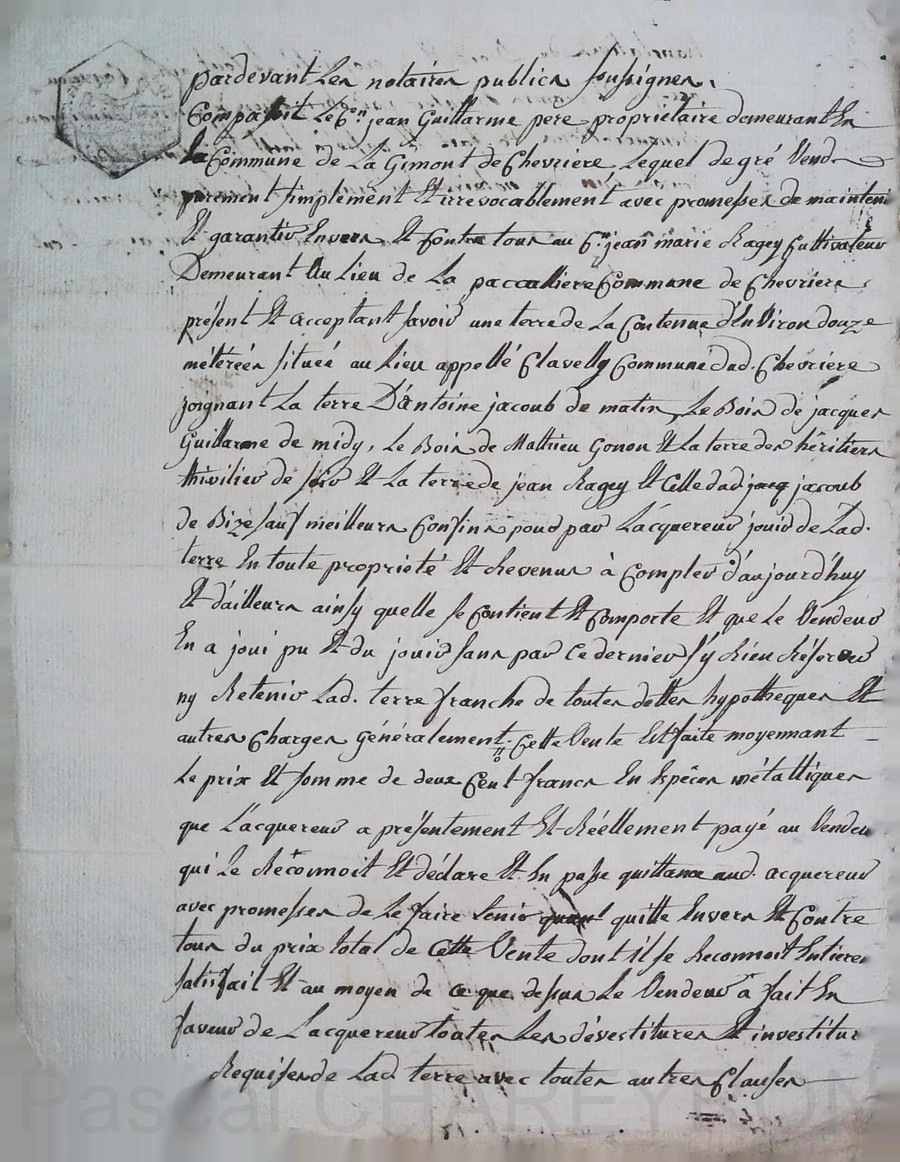 pardevant Les notaires publics soussignes,
Comparoit Le Cen jean Guillarme pere propriétaire demeurant En
la Commune de La Gimont de Chevriere Lequel de gré Vend
purement simplement Et irrevocablement avec promesses de mainteni
Et garantir Envers Et Contre tous au Cen jean marie Ragey Cultivateur
Demeurant Au Lieu de La paccalliere Commune de Chevriere,
présent Et acceptant savoir une terre de La Contenue d'Environ douze
metérées située au Lieu appellé Clavelly Commune dud. Chevriere
joignant La terre D'antoine jacoub de matin, Le Bois de jacques
Guillarme de midy, Le Bois de Mathieu Gonon Et La terre des héritiers
thivilier de soir Et La terre de jean Ragey Et Celle dud jacq jacoub
de Bize sauf meilleurs Confins pour par L'acquereur jouir de Lad.
terre En toute propriété Et Revenus à Compter d'aujourd'huy
Et d'ailleurs ainsy quelle se Contient Et Comporte Et que Le Vendeur
En a joui pu Et du jouir sans par Ce dernier s'y Rien Réserver
ny Retenir Lad. terre franche de toutes dettes hypotheques Et
autres Charges généralement. Cette Vente Est faite moyennant
Le prix Et somme de deux Cent francs En Espèces métalliques
que L'acquereur a présentement Et Réellement payé au Vendeu
qui Le Réconnoit Et déclare Et En passe quittance aud. acquereur
avec promesses de Le faire tenir quitte Envers Et Contre
tous du prix total de Cette Vente dont il se Reconnoit Entierem
satisfait Et au moyen de ce que dessus Le Vendeur a fait En
faveur de L'acquereur toutes Les dévestitures Et investitur
Requises de Lad. terre avec toutes autres Clauses
Pascal CHAREYRON